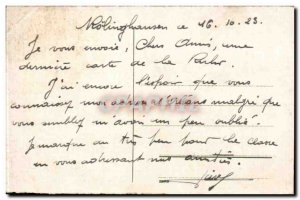 Mölinghausen ce 16.10.23.
Je vous envoie, Chers Amis, une
dernière carte de la Ruhr.
J'ai encore l'espoir que vous
connaissez mon malgré que
vous semblez m'avoir un peu oublié.
Je marque un très peu pour la classe
en vous adressant nos amitiés.